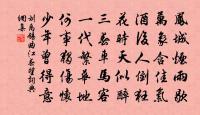 鳳城煙雨歇
萬象含佳氣
酒後人倒狂
花時天似醉
三春車馬客
一代繁華地
何事獨傷懷
少年曾得意
劉禹錫曲江春望詞典
網集